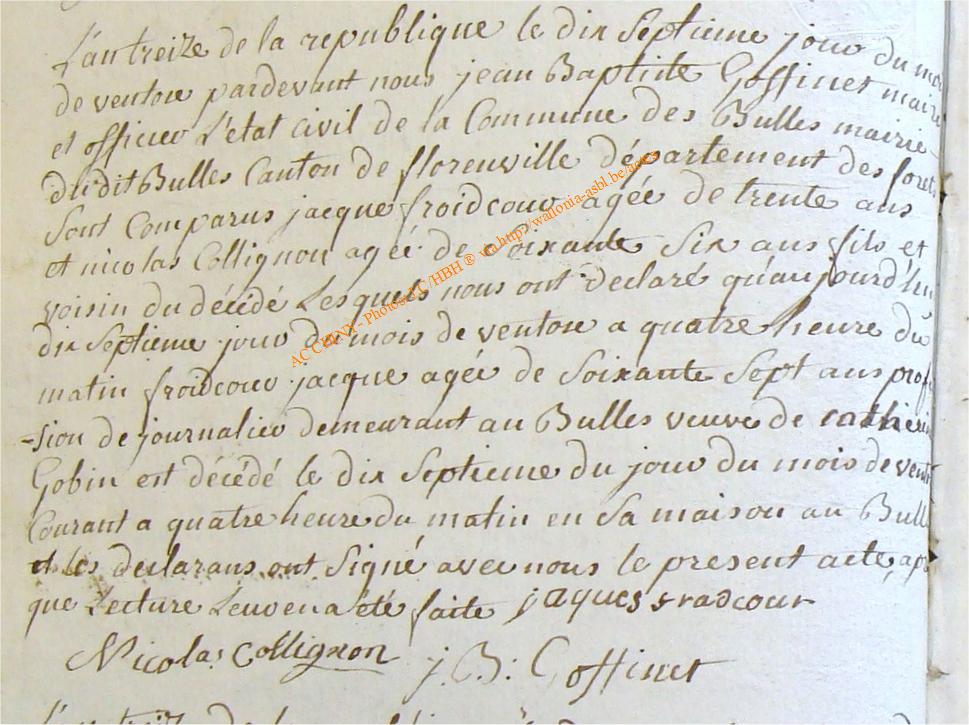 L'an treize de la republique le dix Septieme jour du moi
de ventose pardevant nous jean Baptiste Goffinet maire
et officier L'etat civil de la Commune des Bulles mairie
dudit Bulles Canton de florenville département des forets
Sont Comparus jacque froidcour agée de trente ans
et nicolas Collignon agée de Soixante Six ans fils et
voisin du décédé Lesquels nous ont declaré qu'aujourd'hui
dix Septieme jour du mois de ventose a quatre heure du
matin froidcour jacque agée de Soixante Sept ans profe
-sion de journalier demeurant au Bulles veuve de catherin
Gobin est décédé le dix Septieme du jour du mois de vent
Courant a quatre heure du matin en Sa maison au Bull
et les declarans ont Signé avec nous le present acte, apr
que Lecture Leur en a été faite jaques fradcour
Nicolas Collignon j. B: Goffinet
AC CHINY - Photos LC/HBH ® via http://wallonia-asbl.be/actes